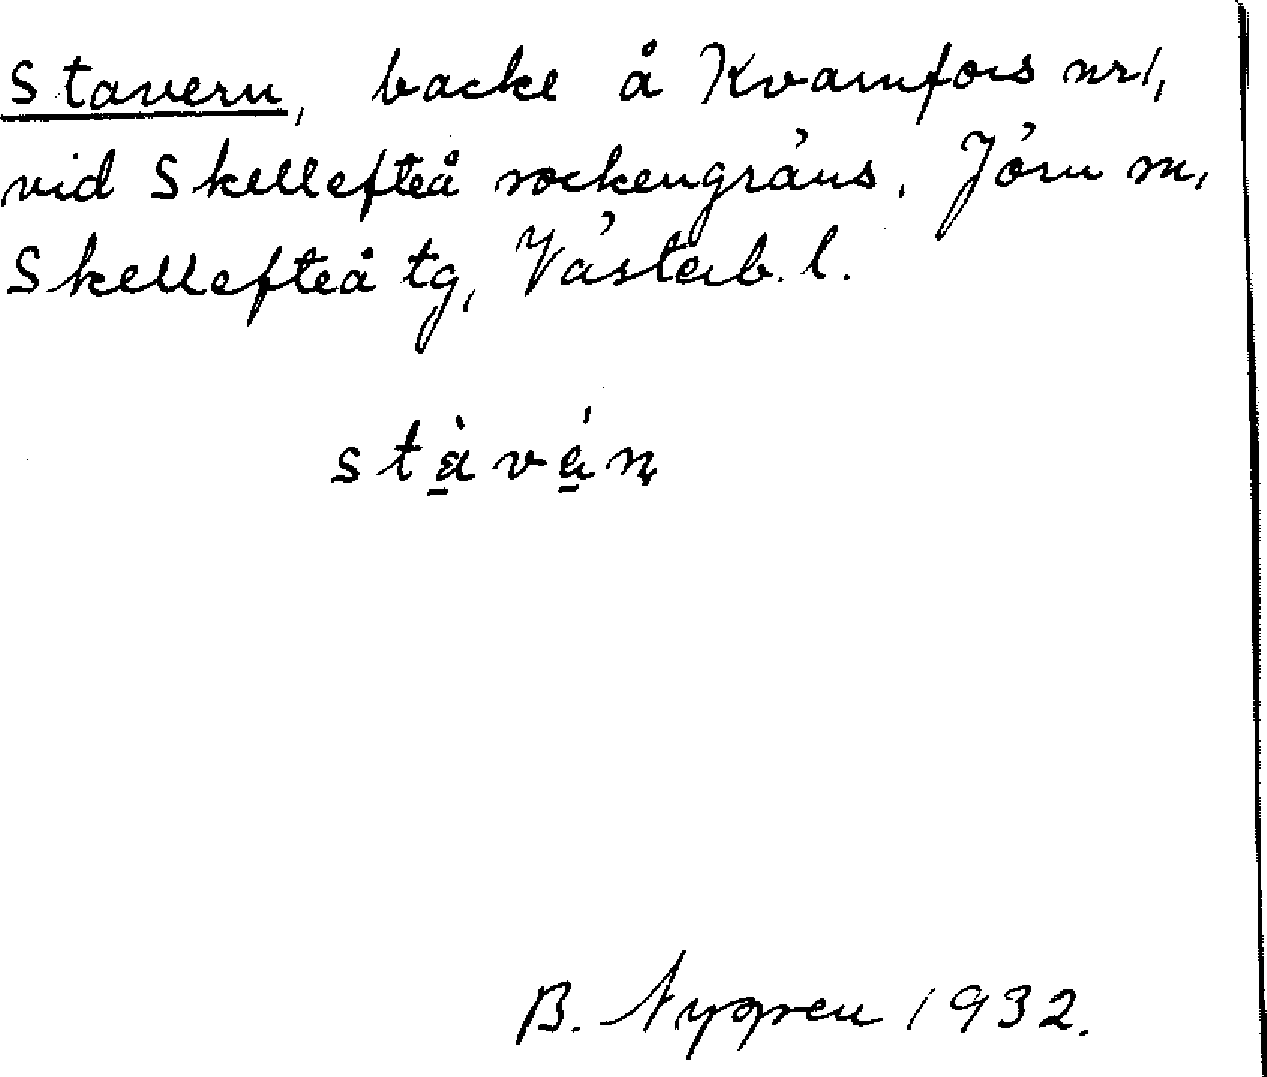 Stavern, backe å Kvarnfors nr 1,
vid Skellefteå sockengräns. Jörn sn,
Skellefteå tg, Västerb. l.
stà̱vá̱ṇ
B. Nygren 1932.